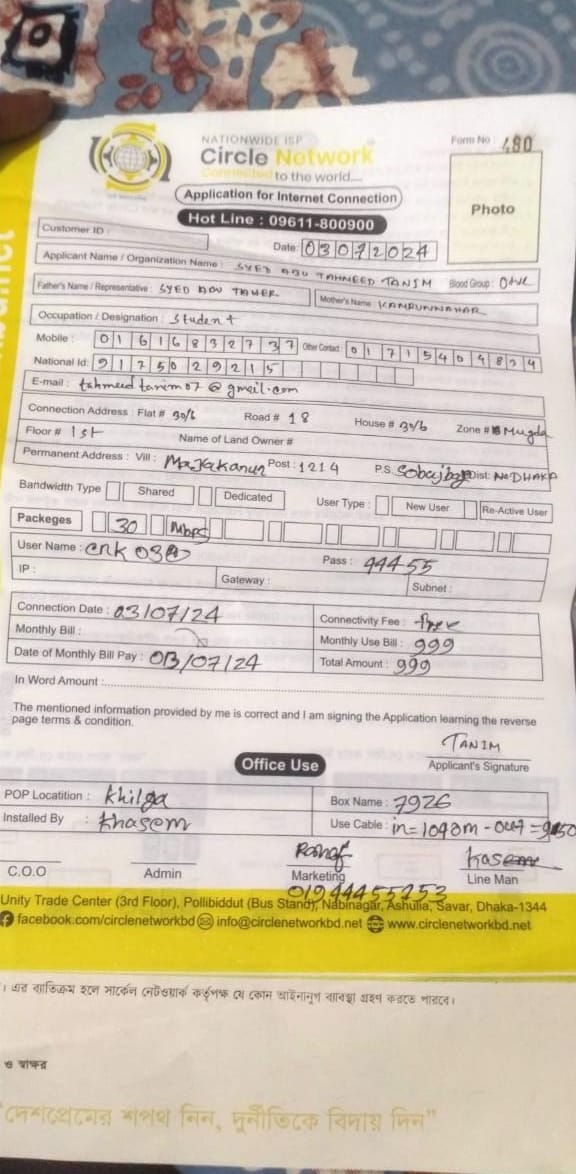 NATIONWIDE ISP
Circle Network
Connected to the world....
Form No : 480
Application for Internet Connection
Photo
Hot Line : 09611-800900
Customer ID :
Date: 03072024
Applicant Name / Organization Name : SYED ABU TAHNEED TANIM Blood Group : O+ve
Father's Name / Representative : SYED ABU TAHER Mother's Name : KAMRUNNAHAR
Occupation / Designation : Student
Mobile : 01616832737 Other Contact : 01715404824
National Id: 9175029215
E-mail : tahmeed tanim07 @ gmail.com
Connection Address : Flat # 30/6 Road # 18 House # 30/6 Zone # Mugda
Floor # 1st Name of Land Owner #
Permanent Address : Vill : Post : 1214 P.S. Dist: DHAKA
Bandwidth Type Shared Dedicated User Type : New User Re-Active User
Packeges 30 Mbps
User Name : Pass : 44455
IP : Gateway : Subnet :
Connection Date : 03/07/24 Connectivity Fee : Free
Monthly Bill : Monthly Use Bill : 999
Date of Monthly Bill Pay : 03/07/24 Total Amount : 999
In Word Amount :
The mentioned information provided by me is correct and I am signing the Application learning the reverse
page terms & condition.
TANIM
Applicant's Signature
Office Use
POP Locatition : Khilga Box Name : 7926
Installed By : Khasem Use Cable : in=1040m - out=
C.O.O Admin Marketing Line Man
Unity Trade Center (3rd Floor), Pollibiddut (Bus Stand), Nabinagar, Ashulia, Savar, Dhaka-1344
facebook.com/circlenetworkbd info@circlenetworkbd.net www.circlenetworkbd.net
। এর ব্যতিক্রম হলে সার্কেল নেটওয়ার্ক কর্তৃপক্ষ যে কোন আইনানুগ ব্যবস্থা গ্রহণ করতে পারবে।
ও স্বাক্ষর
"দেশপ্রেমের শপথ নিন, দুর্নীতিকে বিদায় দিন"